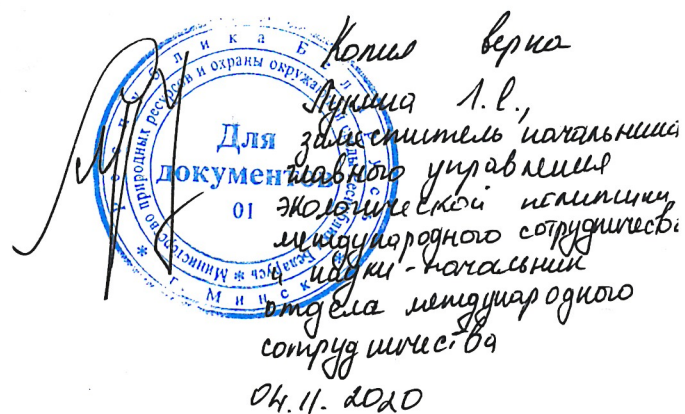 Копия верна
Лукина Л.С.,
заместитель начальника
главного управления
экологической политики,
международного сотрудничества
и науки - начальник
отдела международного
сотрудничества
04.11.2020
Республика Беларусь
* г. Минск *
* Министерство природных ресурсов и охраны окружающей среды Республики Беларусь
Для
документов
01